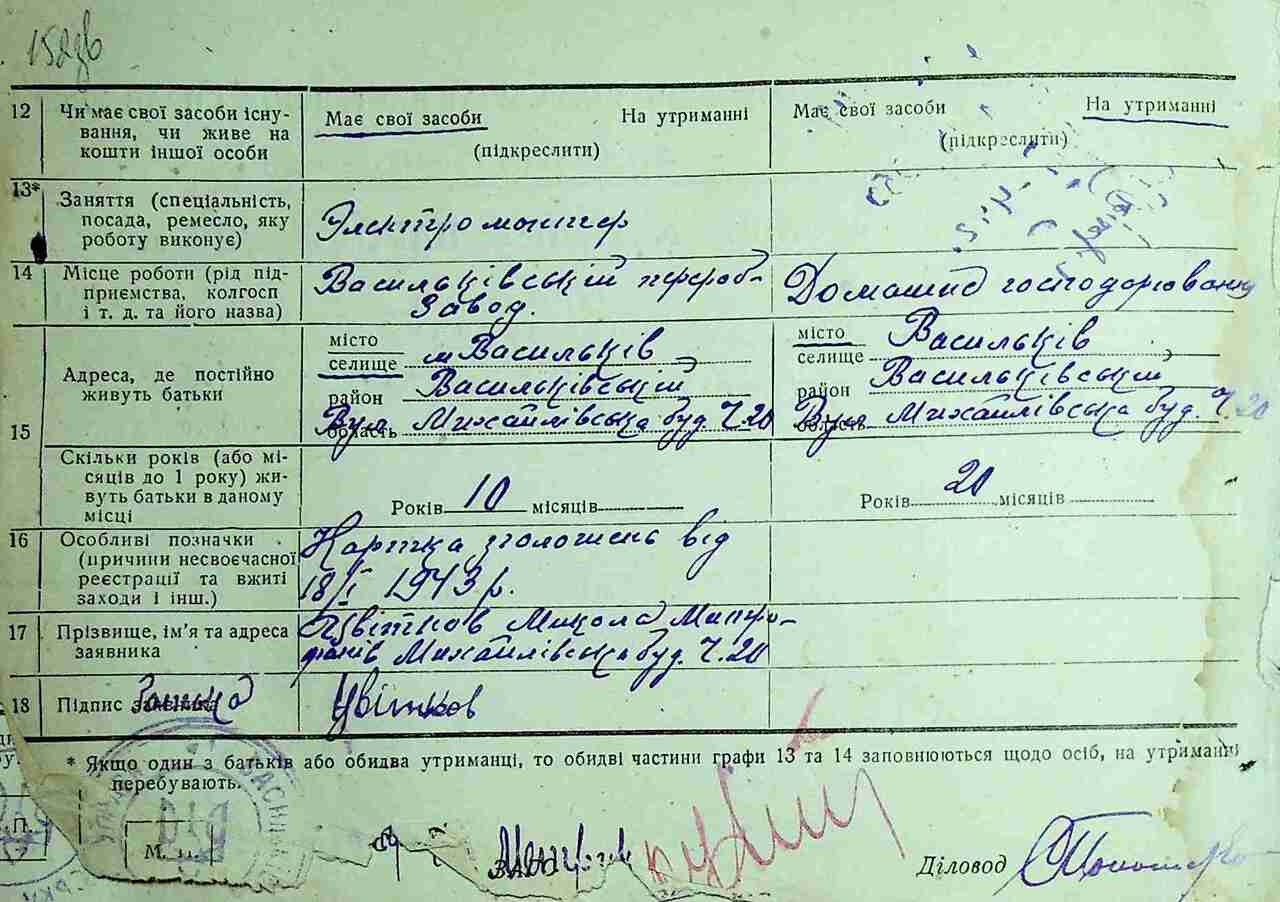 152зв
12 Чи має свої засоби існу-
вання, чи живе на
кошти іншої особи
Має свої засоби На утриманні
(підкреслити)
Має свої засоби На утриманні
(підкреслити)
13* Заняття (спеціальність,
посада, ремесло, яку
роботу виконує)
Электромонтер
14 Місце роботи (рід під-
приємства, колгосп
і т. д. та його назва)
Васильківській перероб-
Завод.
Домашнє господарювання
15 Адреса, де постійно
живуть батьки
місто
селище м Васильків
район Васильківській
область Вул Михайлівська буд. Ч.20
місто Васильків
селище
район Васильківській
область Вул Михайлівська буд. Ч. 20
Скільки років (або мі-
сяців до 1 року) жи-
вуть батьки в даному
місці
Років 10 місяців
Років 20 місяців
16 Особливі позначки
(причини несвоєчасної
реєстрації та вжиті
заходи і інш.)
Картка зголошена від
18/I 1943 р.
17 Прізвище, ім’я та адреса
заявника
Цвітков Микола
Михайлівська буд. Ч. 20
18 Підпис заявника
Цвітков
* Якщо один з батьків або обидва утриманці, то обидві частини графи 13 та 14 заповнюються щодо осіб, на утриманні
перебувають.
М. П.
ЗАГС
Діловод